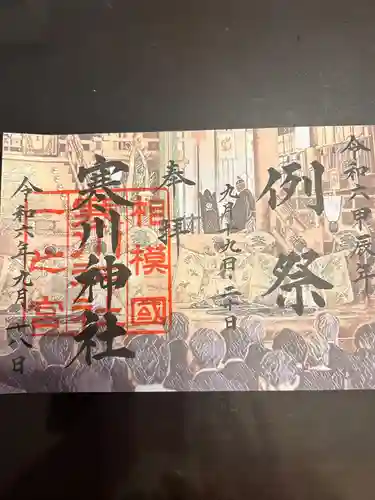 令和六甲辰年
例祭
九月十九日・二十日
奉拝
寒川神社
相模國
一之宮
令和六年九月二十八日